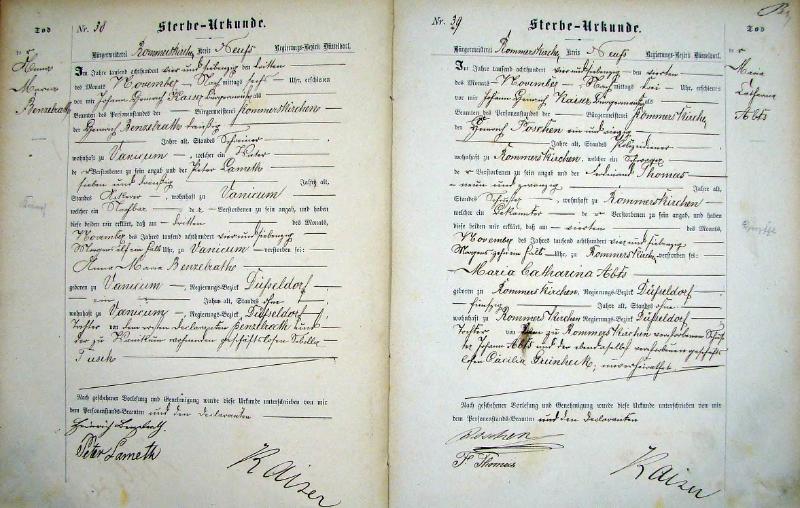 Tod
der
Anna
Maria
Benzelrath
Nr. 38
Sterbe-Urkunde.
Bürgermeisterei Rommerskirchen Kreis Neuß Regierungs-Bezirk Düsseldorf.
Im Jahre tausend achthundert vier und siebenzig den dritten
des Monats November Nachmittags sechs Uhr, erschienen
vor mir Johann Heinrich Kaiser Bürgermeister als
Beamten des Personenstandes der Bürgermeisterei Rommerskirchen
der Heinrich Benzelrath dreißig
Jahre alt, Standes Schreiner
wohnhaft zu Vanicum, welcher ein Vater
der Verstorbenen zu sein angab und der Peter Lameth
sieben und dreißig Jahre alt,
Standes Ackerer, wohnhaft zu Vanicum
welcher ein Nachbar der Verstorbenen zu sein angab, und haben
diese beiden mir erklärt, daß am dritten des Monats
November des Jahres tausend achthundert vier und siebenzig
Morgens elf ein halb Uhr, zu Vanicum verstorben sei:
Anna Maria Benzelrath
geboren zu Vanicum, Regierungs-Bezirk Düsseldorf
ein Jahre alt, Standes ohne
wohnhaft zu Vanicum, Regierungs-Bezirk Düsseldorf
Tochter von dem ersten Declaranten Benzelrath und
der zu wohnenden geschäftslosen Sibilla
Tusch
Nach geschehener Vorlesung und Genehmigung wurde diese Urkunde unterschrieben von mir
dem Personenstands-Beamten und den Declaranten
Heinrich Benzelrath
Peter Lameth
Kaiser
Nr. 39
Sterbe-Urkunde.
Bürgermeisterei Rommerskirchen Kreis Neuß Regierungs-Bezirk Düsseldorf.
Im Jahre tausend achthundert vier und siebenzig den vierten
des Monats November, Nachmittags drei Uhr, erschienen
vor mir Johann Heinrich Kaiser Bürgermeister als
Beamten des Personenstandes der Bürgermeisterei Rommerskirchen
der Heinrich Poschen ein und vierzig
Jahre alt, Standes Polizeidiener
wohnhaft zu Rommerskirchen, welcher ein Schwager
der Verstorbenen zu sein angab und der Ferdinand Thomas
neun und zwanzig Jahre alt,
Standes Schuster, wohnhaft zu Rommerskirchen
welcher ein Bekannter der Verstorbenen zu sein angab, und haben
diese beiden mir erklärt, daß am vierten des Monats
November des Jahres tausend achthundert vier und siebenzig
Morgens zehn ein halb Uhr, zu Rommerskirchen verstorben sei:
Maria Catharina Abts
geboren zu Rommerskirchen, Regierungs-Bezirk Düsseldorf
fünfzig Jahre alt, Standes ohne
wohnhaft zu Rommerskirchen Regierungs-Bezirk Düsseldorf
Tochter von dem zu Rommerskirchen verstorbenen
Johann Abts und der daselbst verstorbenen
Cäcilia Grünheck, unverheirathet.
Nach geschehener Vorlesung und Genehmigung wurde diese Urkunde unterschrieben von mir
dem Personenstands-Beamten und den Declaranten
Poschen
F. Thomas
Kaiser
Tod
der
Maria
Catharina
Abts